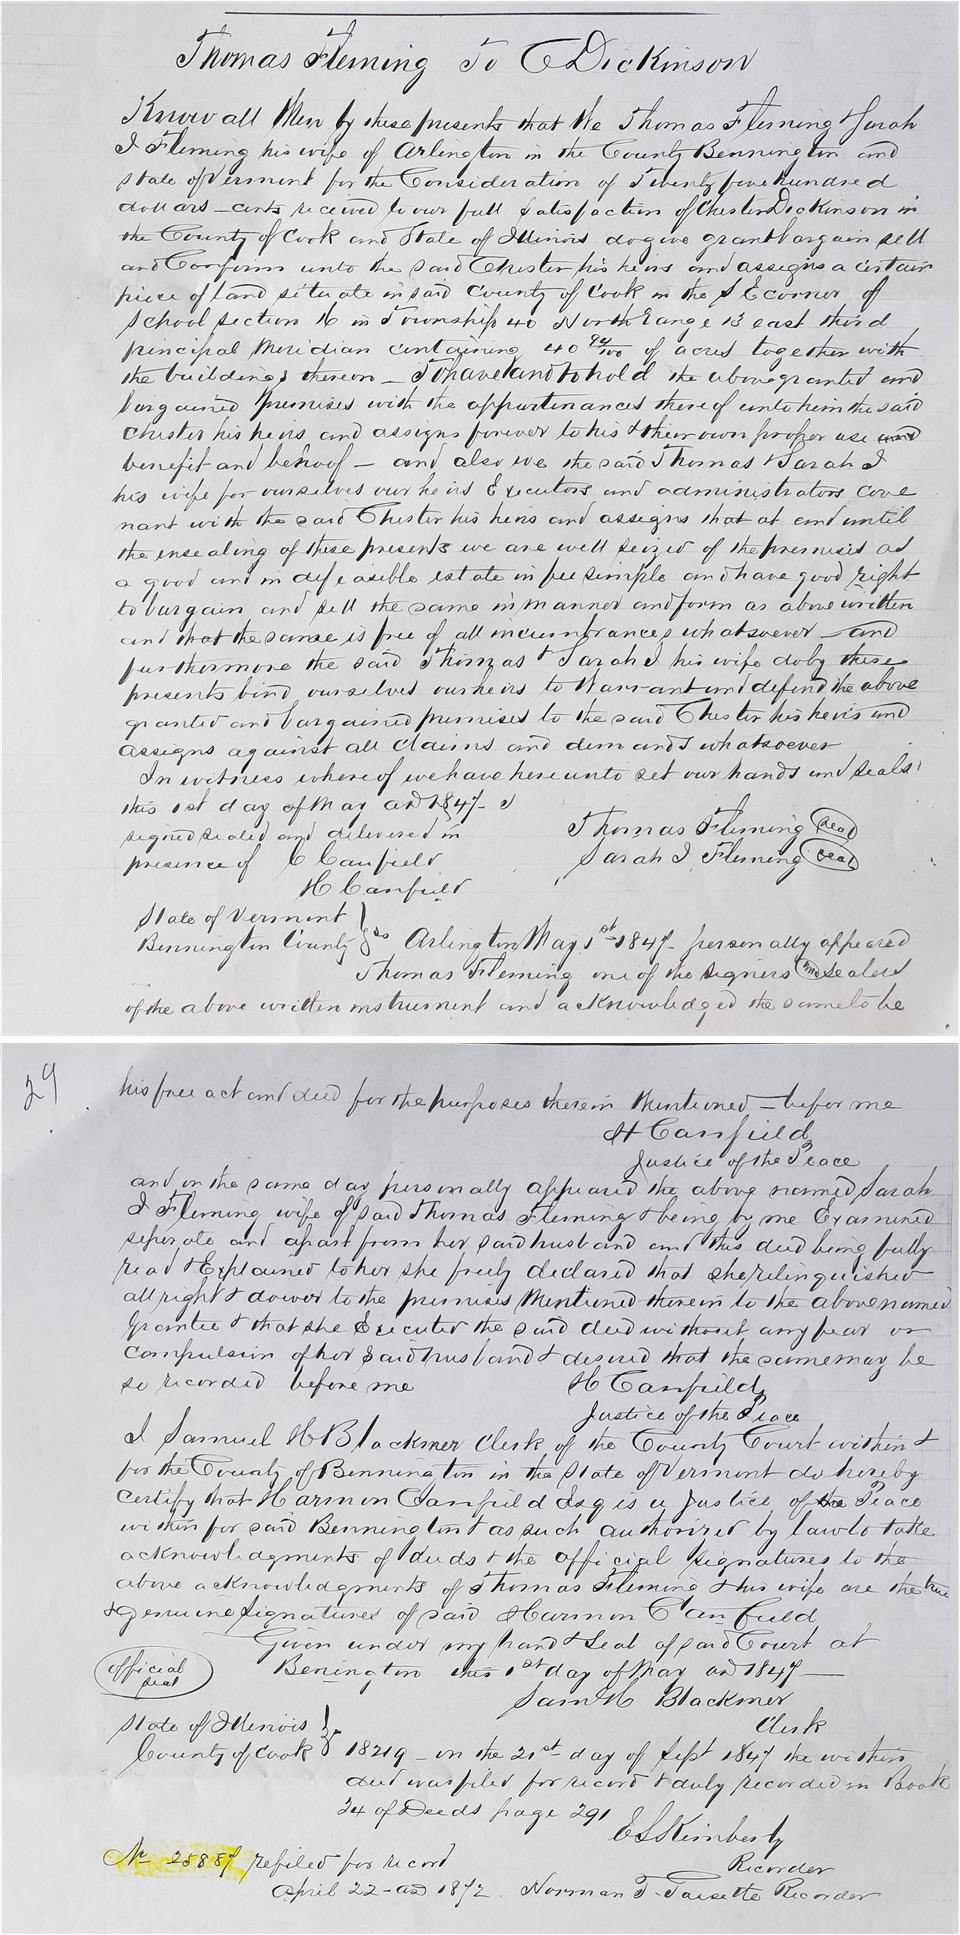 Thomas Fleming To C Dickinson
Know all Men by these presents that We Thomas Fleming & Sarah
I Fleming his wife of Arlington in the County Bennington and
state of Vermont for the Consideration of Twenty five hundred
dollars - cents received to our full satisfaction of Chester Dickinson in
the County of Cook and State of Illinois do give grant bargain sell
and Confirm unto the said Chester his heirs and assigns a certain
piece of land situate in said County of Cook in the S E corner of
School section 16 in Township 40 North Range 13 east third
principal Meridian containing 40 94/100 of acres together with
the buildings thereon - To have and to hold the above granted and
bargained premises with the appurtenances thereof unto him the said
Chester his heirs and assigns forever to his & their own proper use and
benefit and behoof - and also we the said Thomas & Sarah I
his wife for ourselves our heirs Executors and administrators cove
nant with the said Chester his heirs and assigns that at and until
the ensealing of these presents we are well seized of the premises as
a good and indefeasible estate in fee simple and have good right
to bargain and sell the same in manner and form as above written
and that the same is free of all incumbrances whatsoever - and
furthermore the said Thomas & Sarah I his wife do by these
presents bind ourselves our heirs to Warrant and defend the above
granted and bargained premises to the said Chester his heirs and
assigns against all Claims and demands whatsoever
In witness whereof we have hereunto set our hands and seals
this 1st day of May AD 1847
signed sealed and delivered in
Thomas Fleming seal
presence of C Canfield
Sarah I Fleming seal
H Canfield
State of Vermont
Bennington County } ss Arlington May 1st 1847 - personally appeared
Thomas Fleming one of the signers and sealers
of the above written instrument and acknowledged the same to be
29
his free act and deed for the purposes therein Mentioned - before me
H Canfield
Justice of the Peace
and on the same day personally appeared the above named Sarah
I Fleming wife of said Thomas Fleming & being by me Examined
seperate and apart from her said husband and this deed being fully
read & Explained to her she freely declared that she relinquished
all right & dower to the premises Mentioned therein to the above named
Grantee & that she Executed the said deed without any fear or
compulsion of her said husband & desired that the same may be
so recorded before me H Canfield
Justice of the Peace
I Samuel H Blackmer Clerk of the County Court within &
for the County of Bennington in the State of Vermont do hereby
certify that Harmon Canfield Esq is a Justice of the Peace
within for said Bennington & as such authorized by law to take
acknowledgments of deeds & the official signatures to the
above acknowledgments of Thomas Fleming & his wife are the true
& genuine signatures of said Harmon Canfield
Given under my hand & Seal of said Court at
official seal
Benington this 1st day of May AD 1847 -
Saml H Blackmer
Clerk
State of Illinois
County of Cook } 18219 - on the 21st day of Sept 1847 the within
deed was filed for record & duly recorded in Book
24 of Deeds page 291
E S Kimberly
Recorder
No 25887 refiled for record
April 22 - AD 1872. Norman T. Gassette Recorder